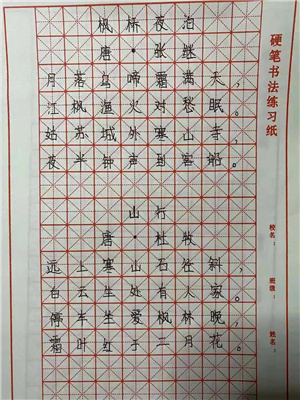 枫桥夜泊
唐·张继
月落乌啼霜满天，
江枫渔火对愁眠。
姑苏城外寒山寺，
夜半钟声到客船。
山行
唐·杜牧
远上寒山石径斜，
白云生处有人家。
停车坐爱枫林晚，
霜叶红于二月花。
硬笔书法练习纸
校名：
班级：
姓名：